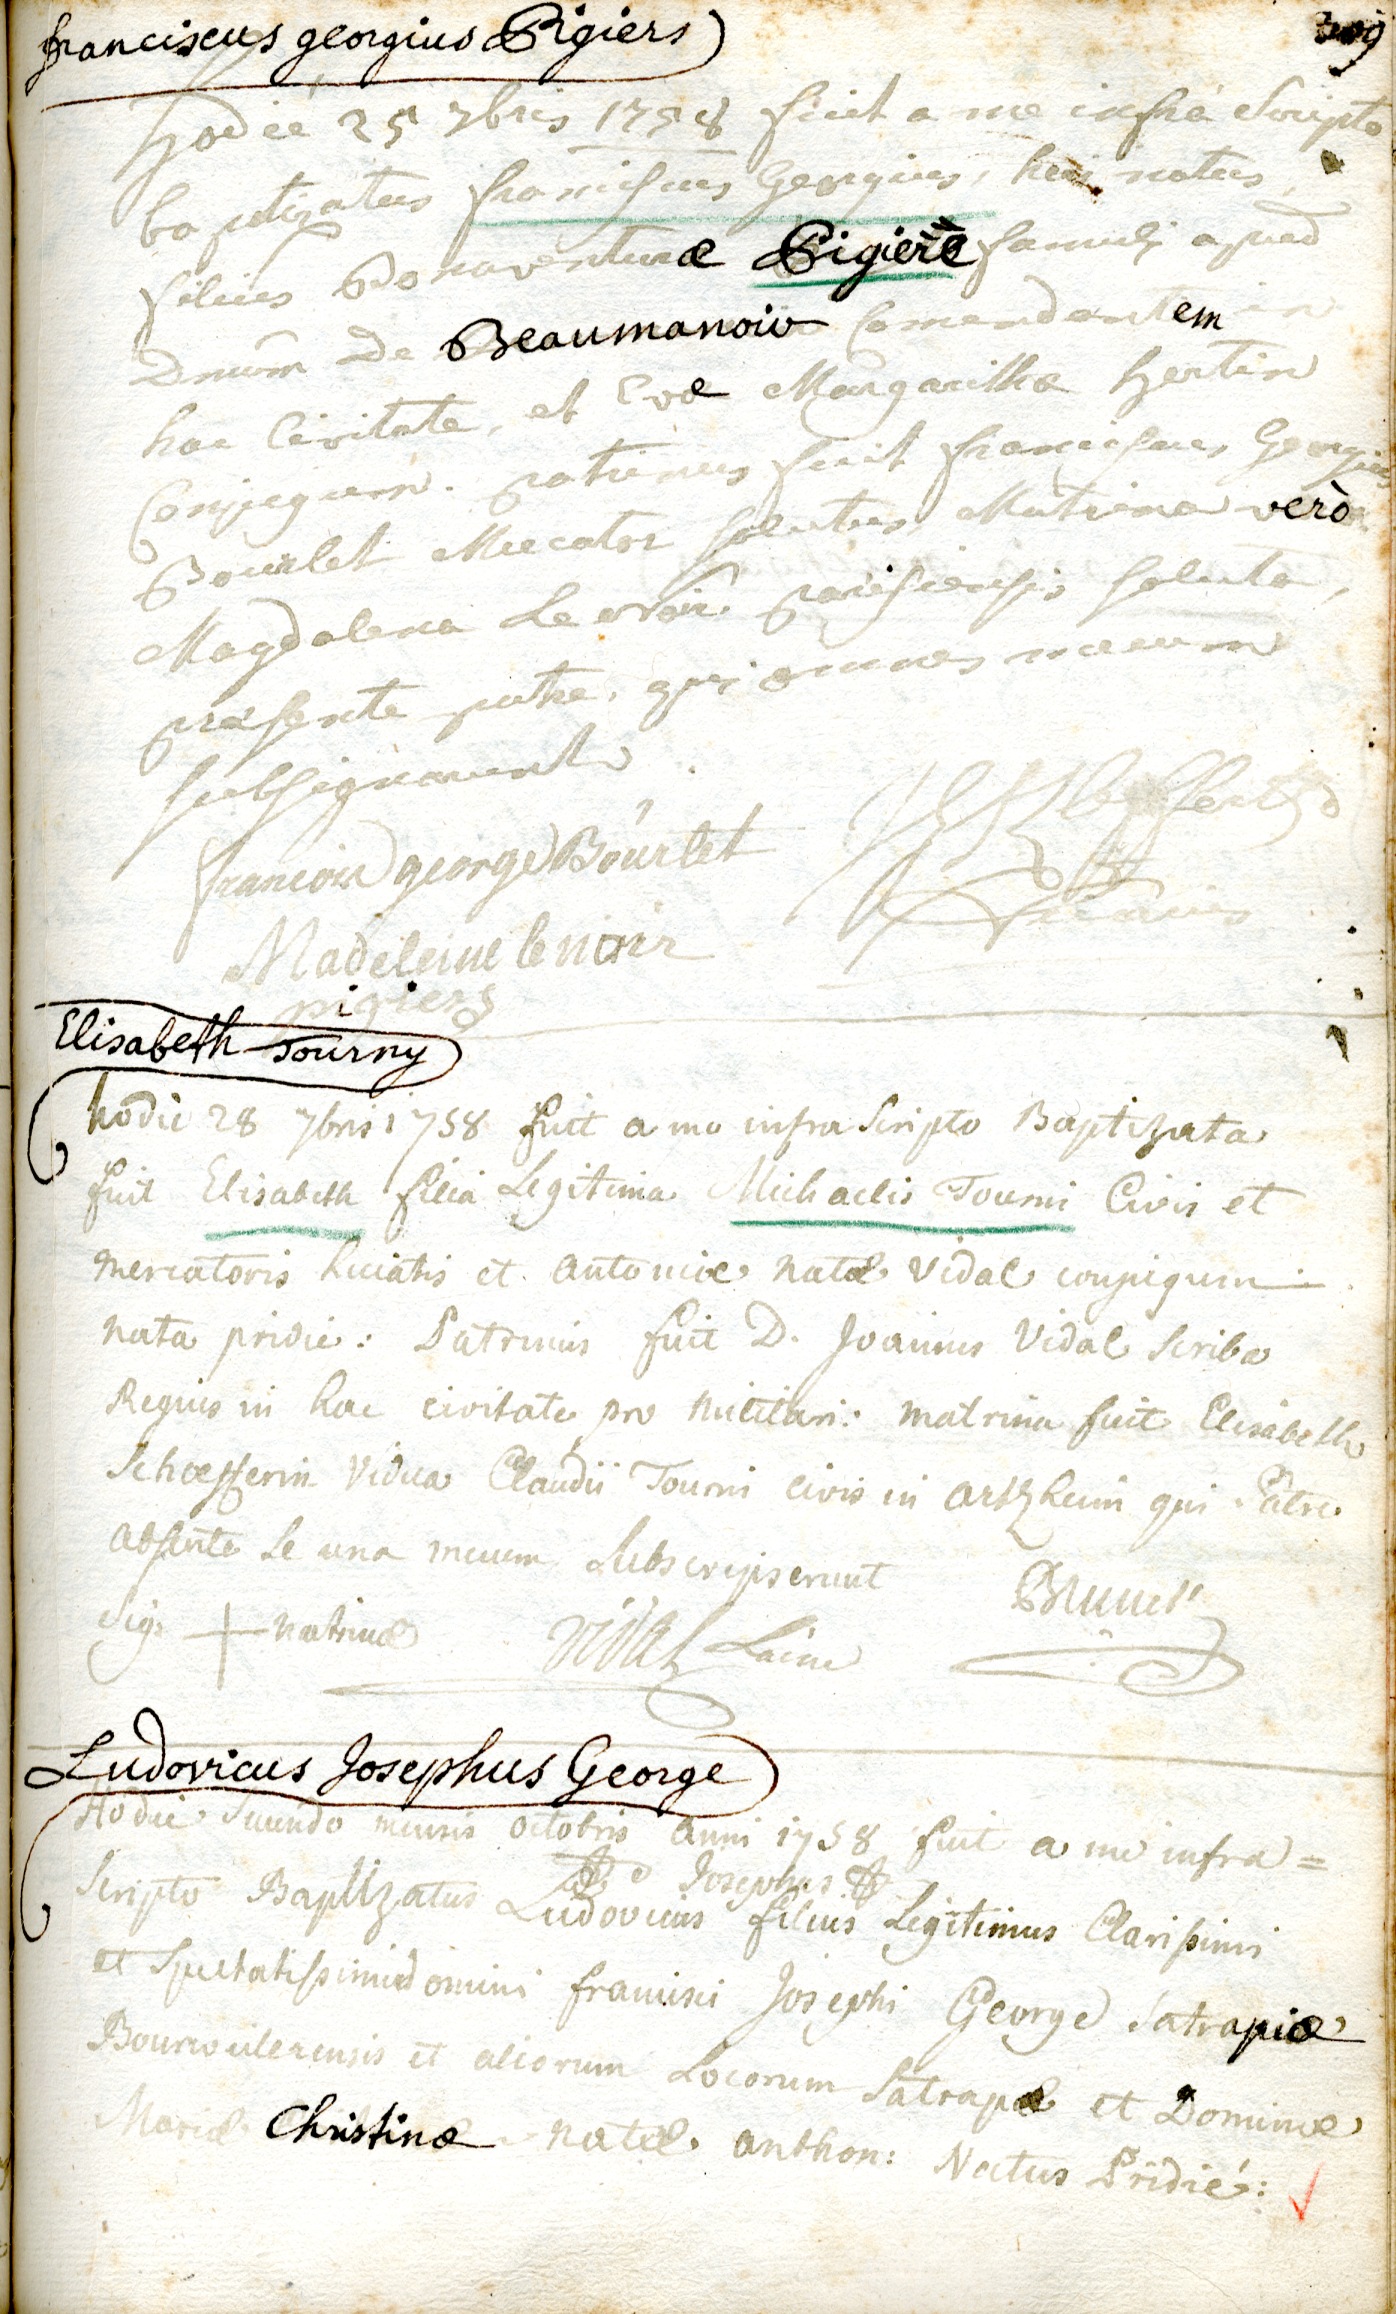 franciscus georgius Pigiers
hodie 25 7bris 1758 fuit a me infra scripto
baptizatus franciscus Georgius, heri natus,
filius Bonaventuræ Pigiere famuli apud
Dnum De Beaumanoir Comendantem in
hac Civitate, et Evæ Margarithæ hertin
Conjugum. patrinus fuit franciscus Georgius
Bourlet Mercator solutus, Matrina verò
Magdalena Le noir parisiensis soluta,
præsente patre, qui omnes mecum
subsignarunt
françois george Bourlet
Madeleine lenoir
pigiers
Elisabeth Tourny
hodie 28 7bris 1758 fuit a me infra scripto Baptizata
fuit Elisabeth filia Legitima Michaelis Tourni Civis et
mercatoris huiatis et antoniæ natæ Vidal conjugum
nata pridie: Patrinus fuit D. Joannes Vidal scriba
Regius in hac civitate pro militari: matrina fuit Elisabeth
Schœfferin Vidua Claudii Tourni civis in artzheim qui Patre
absente se una mecum subscripserunt
Sig: + matrinæ Vidal Lainé Brunet
Ludovicus Josephus George
Hodie secundo mensis octobris anni 1758 fuit a me infra=
Josephus
scripto Baptizatus Ludovicus filius Legitimus Clarissimi
et spectatissimi domini francisci Josephi George Satrapiæ
Bourwilerensis et aliorum Locorum Satrapæ et Dominæ
Mariæ Christinæ natæ anthon: Natus Pridié: